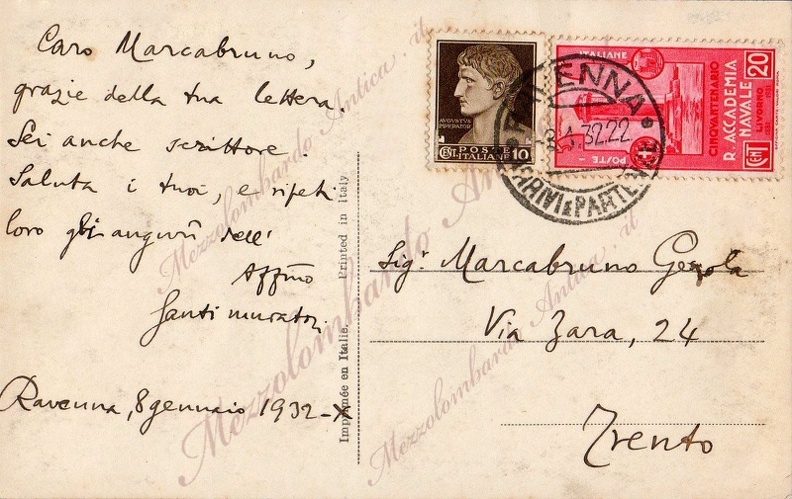 Caro Marcabruno,
grazie della tua lettera.
Sei anche scrittore.
Saluta i tuoi, e ripeti
loro gli auguri dell'
Affmo
Santi Muratori
Ravenna, 8 gennaio 1932-X
Imprimée en Italie. Printed in Italy
AUGUSTUS
IMPERATOR
CENT. POSTE ITALIANE 10
ITALIANE
POSTE
CINQUANTENARIO
R. ACCADEMIA
NAVALE
LIVORNO
20
CENT
RAVENNA
8.1.32.22
ARRIVI E PARTENZE
Sigr. Marcabruno Gerola
Via Zara, 24
Trento
Mezzolombardo Antica.it
Mezzolombardo Antica.it
Mezzolombardo Antica.it